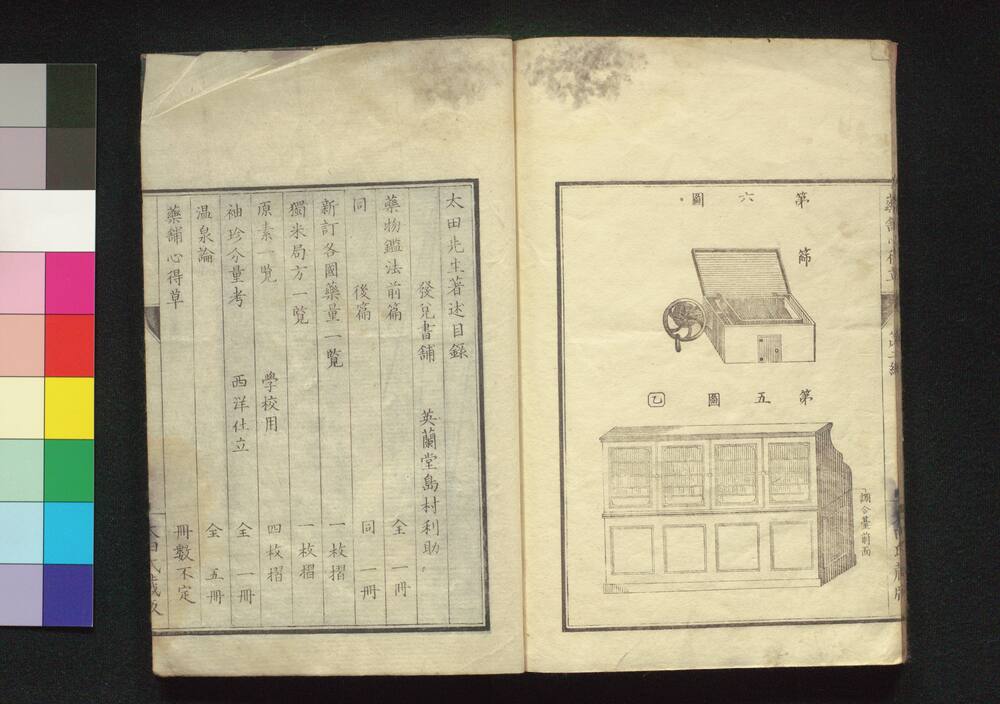 第六圖
篩
第五圖 乙
調合臺前面
太田先生著述目錄
發兌書舖 英蘭堂島村利助
藥物鑑法前篇 全一冊
同 後篇 同一冊
新訂各國藥量一覧 一枚摺
獨米局方一覧 一枚摺
原素一覧 學校用 四枚摺
袖珍分量考 西洋仕立 全一冊
温泉論 全五冊
藥舗心得草 冊數不定
太田氏藏版